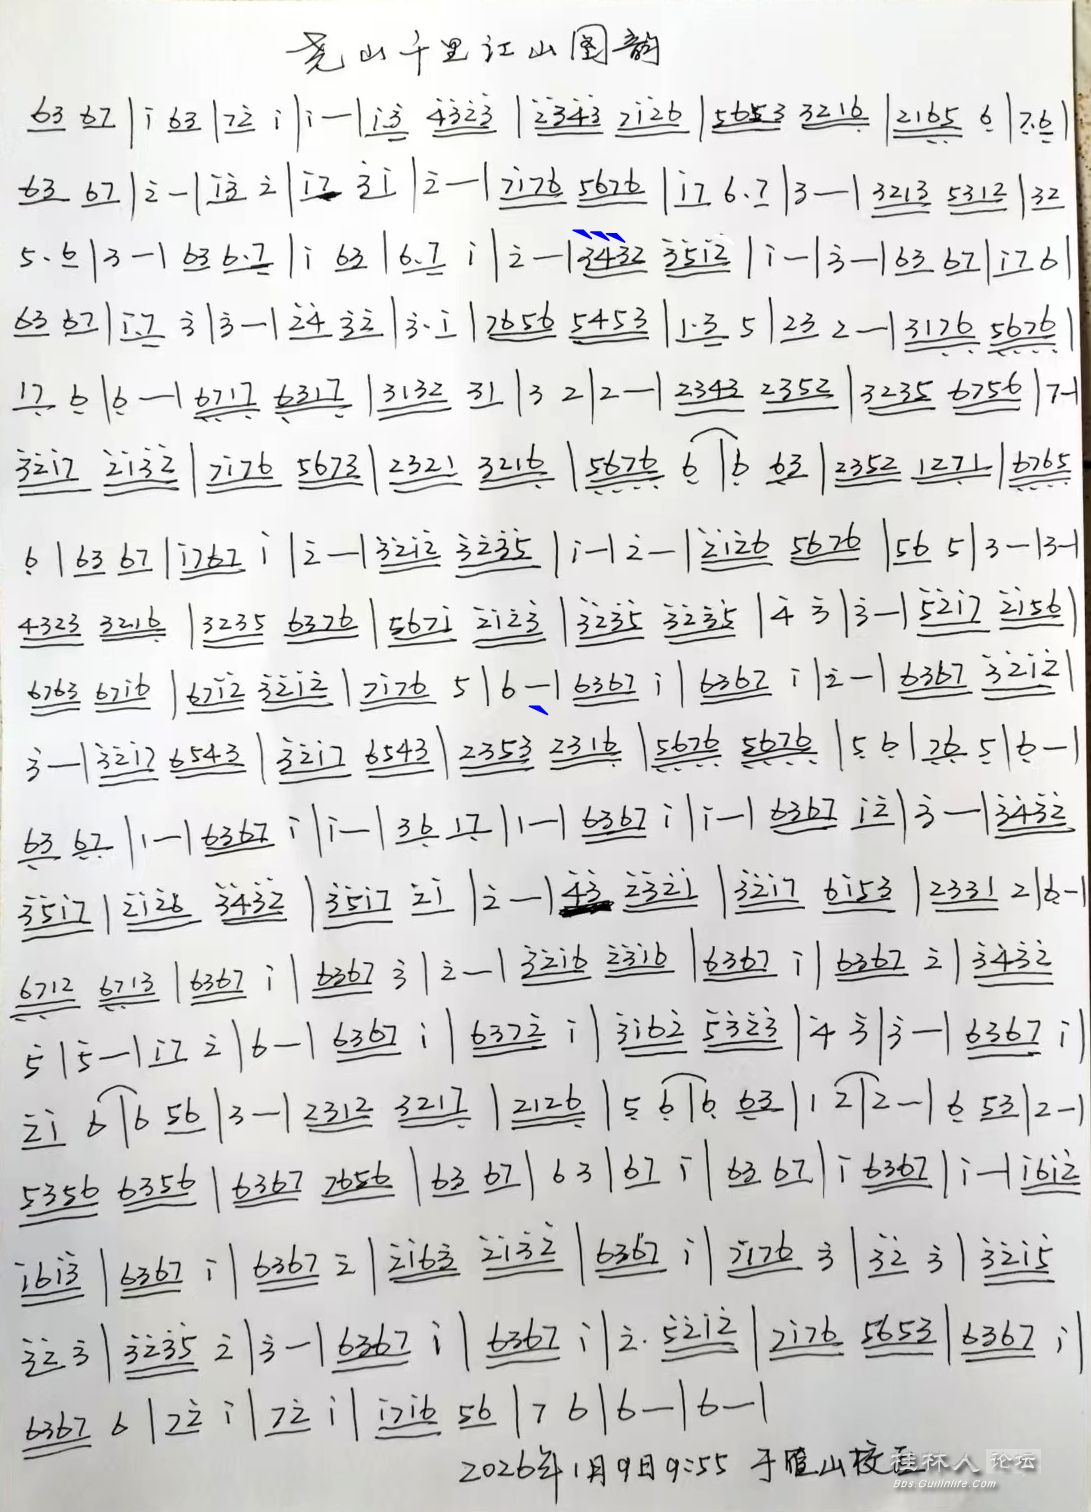 尧山千里江山图韵
63 67 | i 63 | 7ż i | i — | i3̇ 4̇3̇2̇3̇ | 2̇3̇4̇3̇ 7i2̇6 | 5653 3216̣ | 216̣5̣ 6̣ | 7̣.6̣ |
63 67 | 2̇ — | i3̇ 2̇ | i7 3̇i | 2̇ — | 7i76 5676 | i7 6.7 | 3 — | 3213 5312 | 32
5.6̣ | 3 — | 63 6.7 | i 63 | 6.7 i | 2̇ — | 3432 3̇5̇i2̇ | i — | 3̇ — | 63 67 | i7 6 |
63 67 | i.7 3̇ | 3̇ — | 2̇4̇ 3̇2̇ | 3̇.i | 7656 5453 | 1.3 5 | 23 2 — | 317̣6̣ 5̣6̣7̣6̣ |
17̣ 6̣ | 6̣ — | 6̣7̣17̣ 6̣317̣ | 3132 31 | 3 2 | 2 — | 2343 2352 | 3235 6756 | 7 — |
3̇2̇i7 2̇i3̇2̇ | 7i76 5673 | 2321 3216̣ | 5̣6̣7̣6̣ 6̣ | 6̣ 6̣3 | 2352 127̣1 | 6̣7̣6̣5̣
6̣ | 63 67 | i767 i | 2̇ — | 3̇2̇i2̇ 3̇2̇3̇5̇ | i — | 2̇ — | 2̇i2̇6 5676 | 56 5 | 3 — | 3 — |
4323 3216̣ | 3235 6376 | 567i 2̇i2̇3̇ | 3̇2̇3̇5̇ 3̇2̇3̇5̇ | 4̇ 3̇ | 3̇ — | 5̇2̇i7 2̇i56 |
6763 67i6 | 67i2̇ 3̇2̇i2̇ | 7i76 5 | 6 — | 6367 i | 6367 i | 2̇ — | 6367 3̇2̇i2̇ |
3̇ — | 3̇2̇i7 6543 | 3̇2̇i7 6543 | 2353 2316̣ | 5̣6̣7̣6̣ 5̣6̣7̣6̣ | 5̣ 6̣ | 7̣6̣ 5̣ | 6̣ — |
6̣3 6̣7̣ | 1 — | 6367 i | i — | 36̣ 17̣ | 1 — | 6367 i | i — | 6367 i2̇ | 3̇ — | 3̇4̇3̇2̇
3̇5̇i7 | 2̇i2̇6 3̇4̇3̇2̇ | 3̇5̇i7 2̇i | 2̇ — | 4̇3̇ 2̇3̇2̇i | 3̇2̇i7 6i53 | 2331 2 | 6̣ — |
6̣7̣12 6̣7̣13 | 6367 i | 6367 3̇ | 2̇ — | 3̇2̇i6 2̇3̇i6 | 6367 i | 6367 2̇ | 3̇4̇3̇2̇
5̇ | 5̇ — | i7 2̇ | 6 — | 6367 i | 6372̇ i | 3̇i62̇ 5̇3̇2̇3̇ | 4̇ 3̇ | 3̇ — | 6367 i |
2̇i 6 | 6 56 | 3 — | 2312 3217̣ | 2126̣ | 5̣ 6̣ | 6̣ 6̣3 | 1 2 | 2 — | 6̣ 53 | 2 — |
5356 6356 | 6367 7656 | 63 67 | 63 | 67 i | 63 67 | i 6367 | i — | i6i2̇
i6i3̇ | 6367 i | 6367 2̇ | 2̇i63̇ 2̇i3̇2̇ | 6367 i | 7i76 3̇ | 3̇2̇ 3̇ | 3̇2̇i5
3̇2̇ 3 | 3̇2̇3̇5̇ 2̇ | 3̇ — | 6367 i | 6367 i | 2̇. 5̇2̇i2̇ | 7i76 5653 | 6367 i |
6367 6 | 72̇ i | 72̇ i | i7i6 56 | 7 6 | 6 — | 6 — |
2026年1月9日9:55 于雁山校区
桂林人论坛
Bbs.Guilinlife.Com